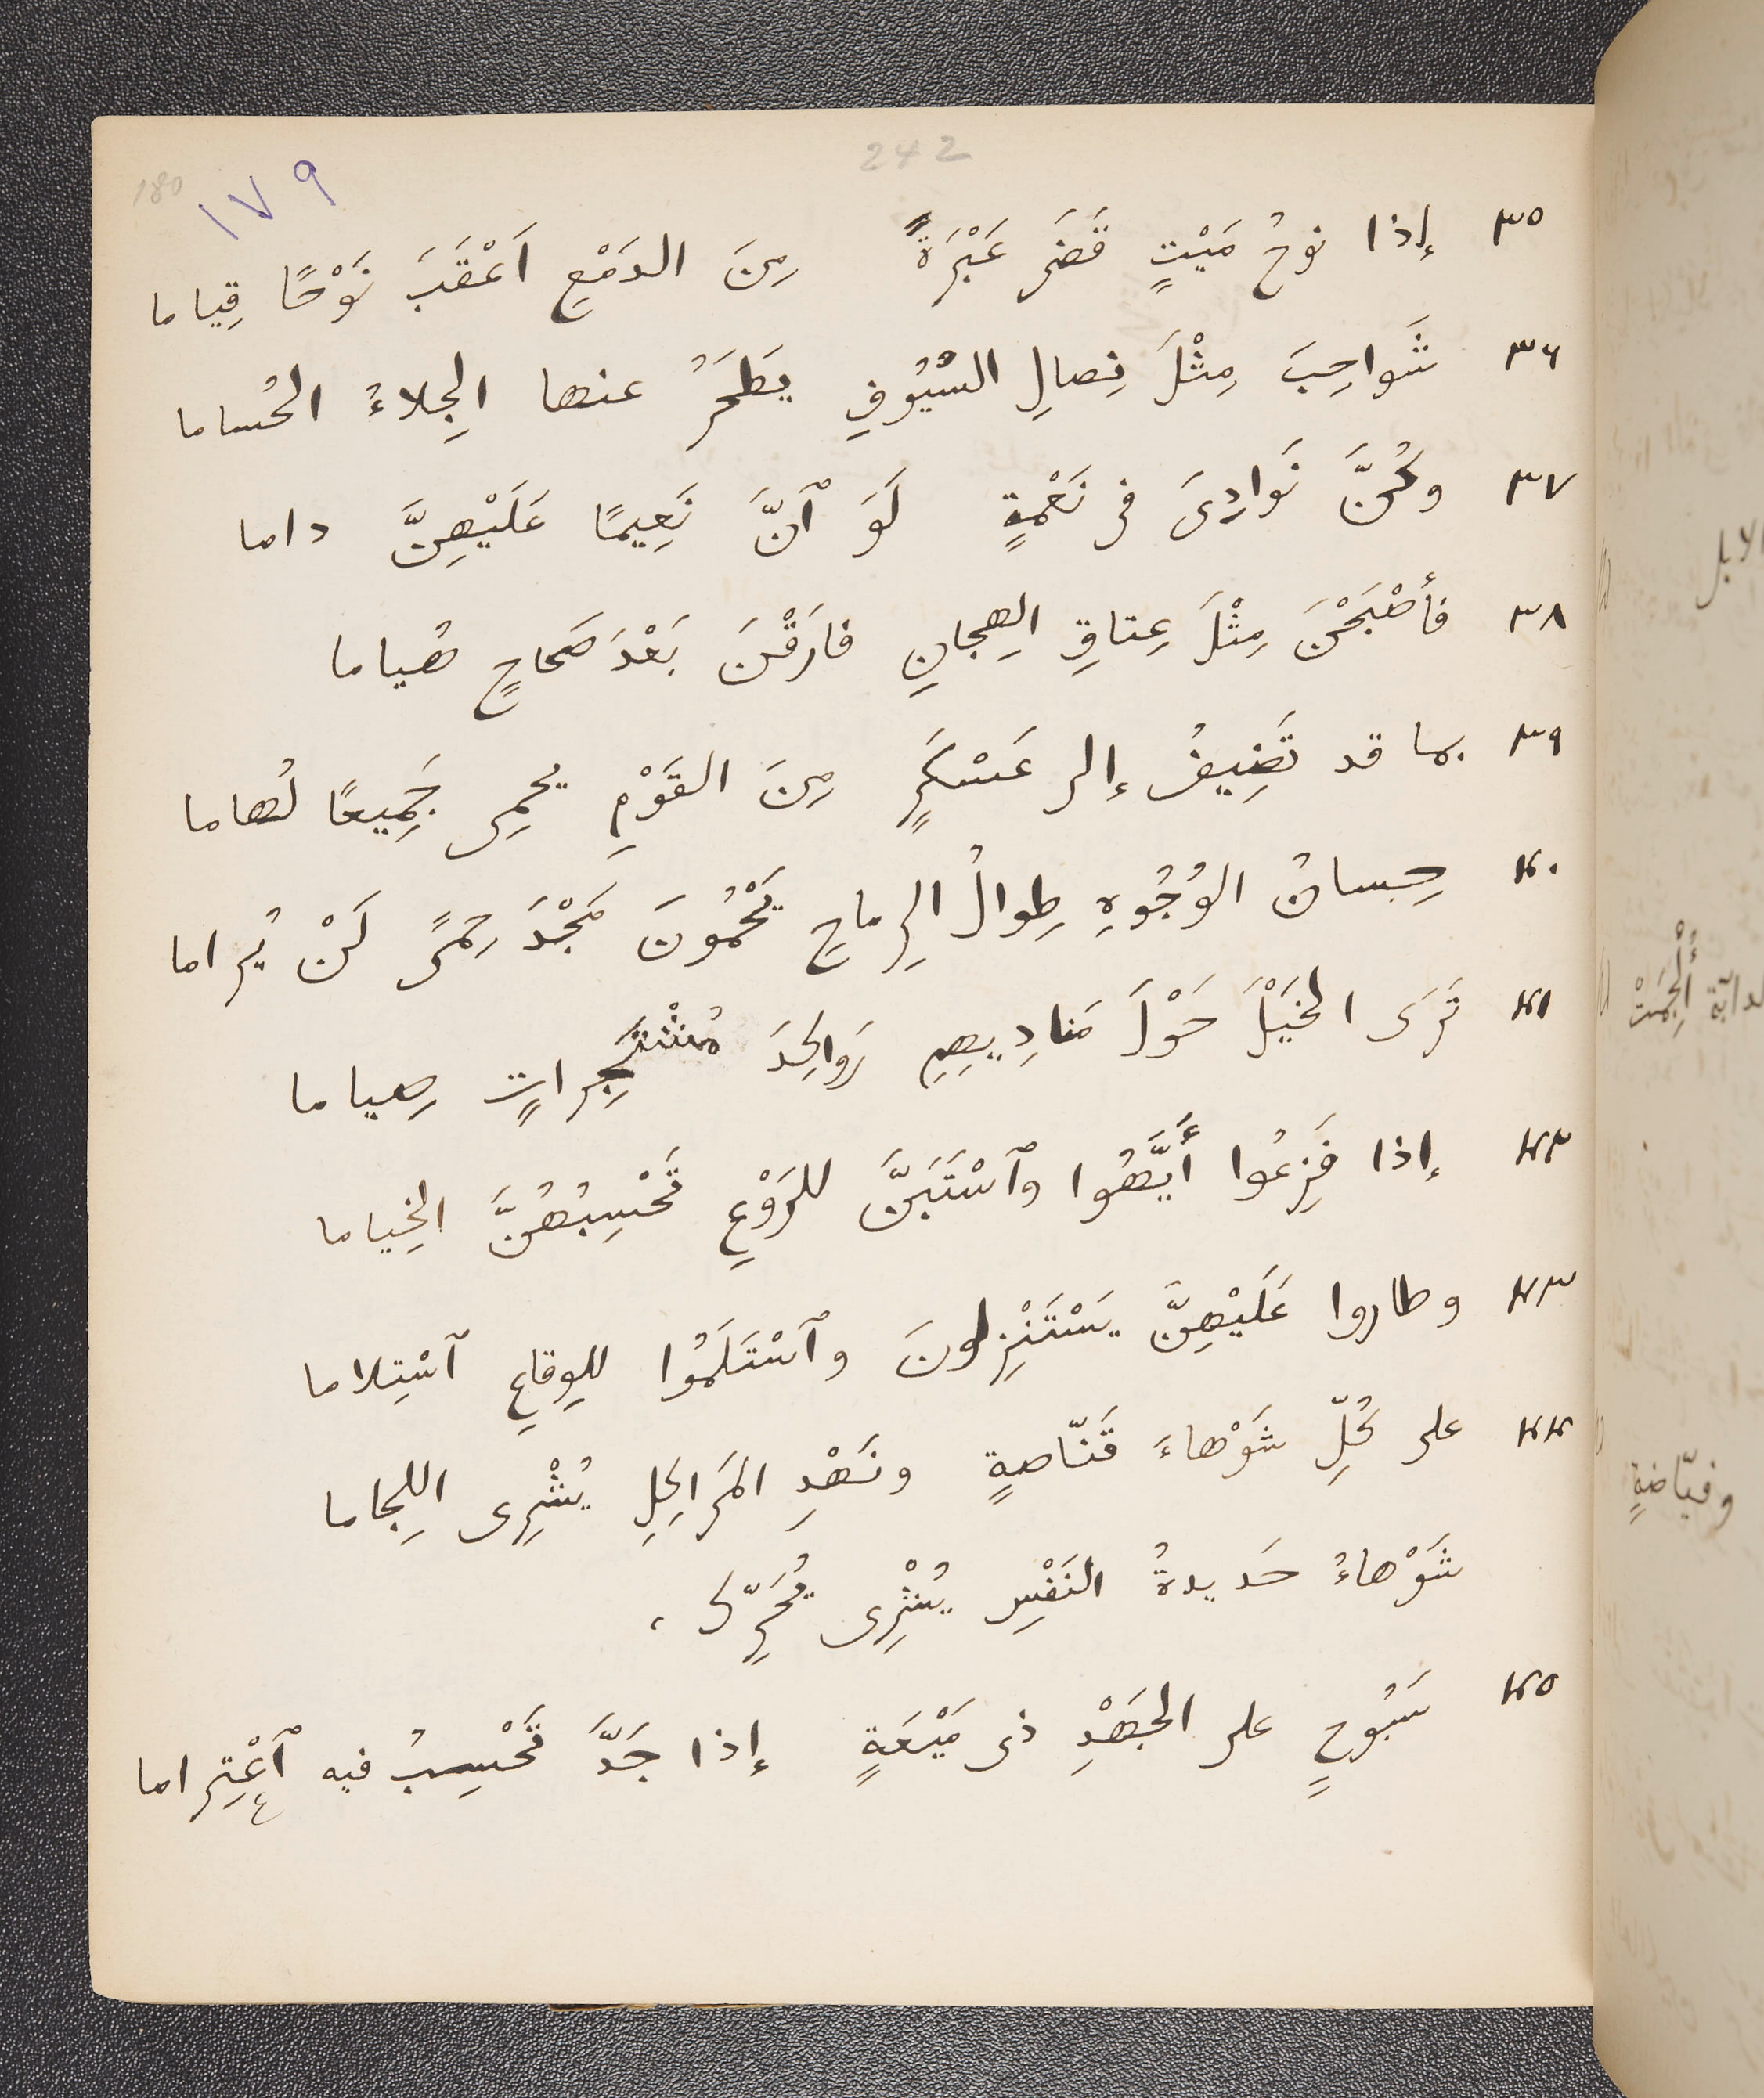 242
180
١٧٩
٣٥ إذا نوحُ مَيْتٍ قَضَى عَبْرَةً مِنَ الدَمْعِ اَعْقَبَ نَوْحًا قِياما
٣٦ شَواحِبَ مِثْلَ نِصالِ السُيُوفِ يَطْحَرُ عنها الجِلاءُ الحُساما
٣٧ وكُنَّ نَوادِىَ فى نَعْمةٍ لَوَ ٱنَّ نَعِيمًا عَلَيْهِنَّ داما
٣٨ فأصْبَحْنَ مِثْلَ عِتاقِ الهِجانِ فارَقْنَ بَعْدَ صَحاحٍ هُياما
٣٩ بما قد تَضِيفُ إلى عَسْكَرٍ مِنَ القَوْمِ يحمِى جَمِيعًا لُهاما
٤٠ حِسانُ الوُجُوهِ طِوالُ الرِماحِ يَحْمُونَ مَجْدَ حِمًى لَنْ يُراما
٤١ تَرَى الخَيْلَ حَوْلَ مَنادِيهِمِ رَواكِدَ مُشْتَجِراتٍ صِياما
٤٢ إذا فَزِعُوا أَيَّهُوا وٱسْتَبَنَّ للرَوْعِ تَحْسِبُهُنَّ الخِياما
٤٣ وطاروا عَلَيْهِنَّ يَسْتَنْزِلونَ وٱسْتَلَمُوا للوِقاعِ ٱسْتِلاما
٤٤ على كُلِّ شَوْهاءَ قَنّاصةٍ ونَهْدِ المَراكِلِ يُشْرِى اللِجاما
شَوْهاءُ حَديدةُ النَفْسِ يُشْرِى يُحَرِّك ،
٤٥ سَبُوحٍ على الجَهْدِ ذى مَيْعَةٍ إذا جَدَّ تَحْسِبُ فيه ٱعْتِراما
الابل
الدابّة أُلْجِمَتْ
وفيّاضةٍ